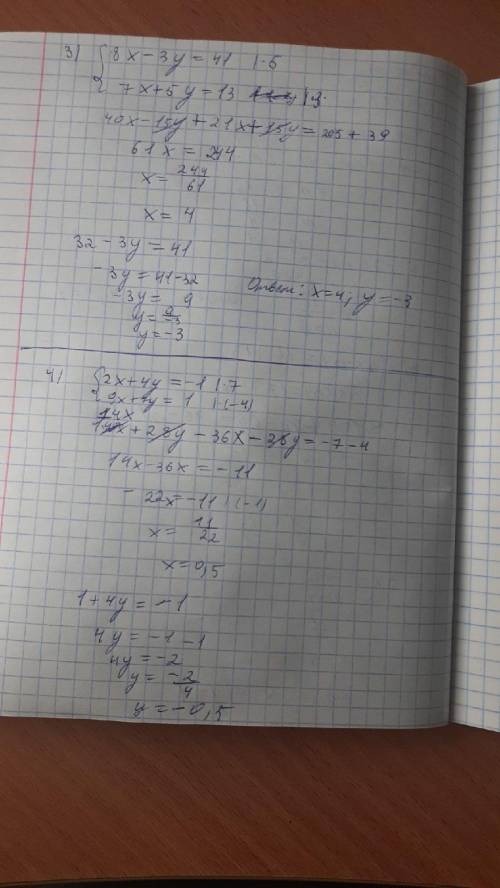 3) { 8x - 3y = 41 | · 5
7x + 5y = 13 | · 3
40x - 15y + 21x + 15y = 205 + 39
61x = 244
x = 244/61
x = 4
32 - 3y = 41
-3y = 41 - 32
-3y = 9 Ответ: x = 4, y = -3
y = 9/-3
y = -3
4) { 2x + 4y = -1 | · 7
9x + 7y = 1 | · (-4)
14x
14x + 28y - 36x - 28y = -7 - 4
14x - 36x = -11
- 22x = -11 | · (-1)
x = 11/22
x = 0,5
1 + 4y = -1
4y = -1 - 1
4y = -2
y = -2/4
y = -0,5